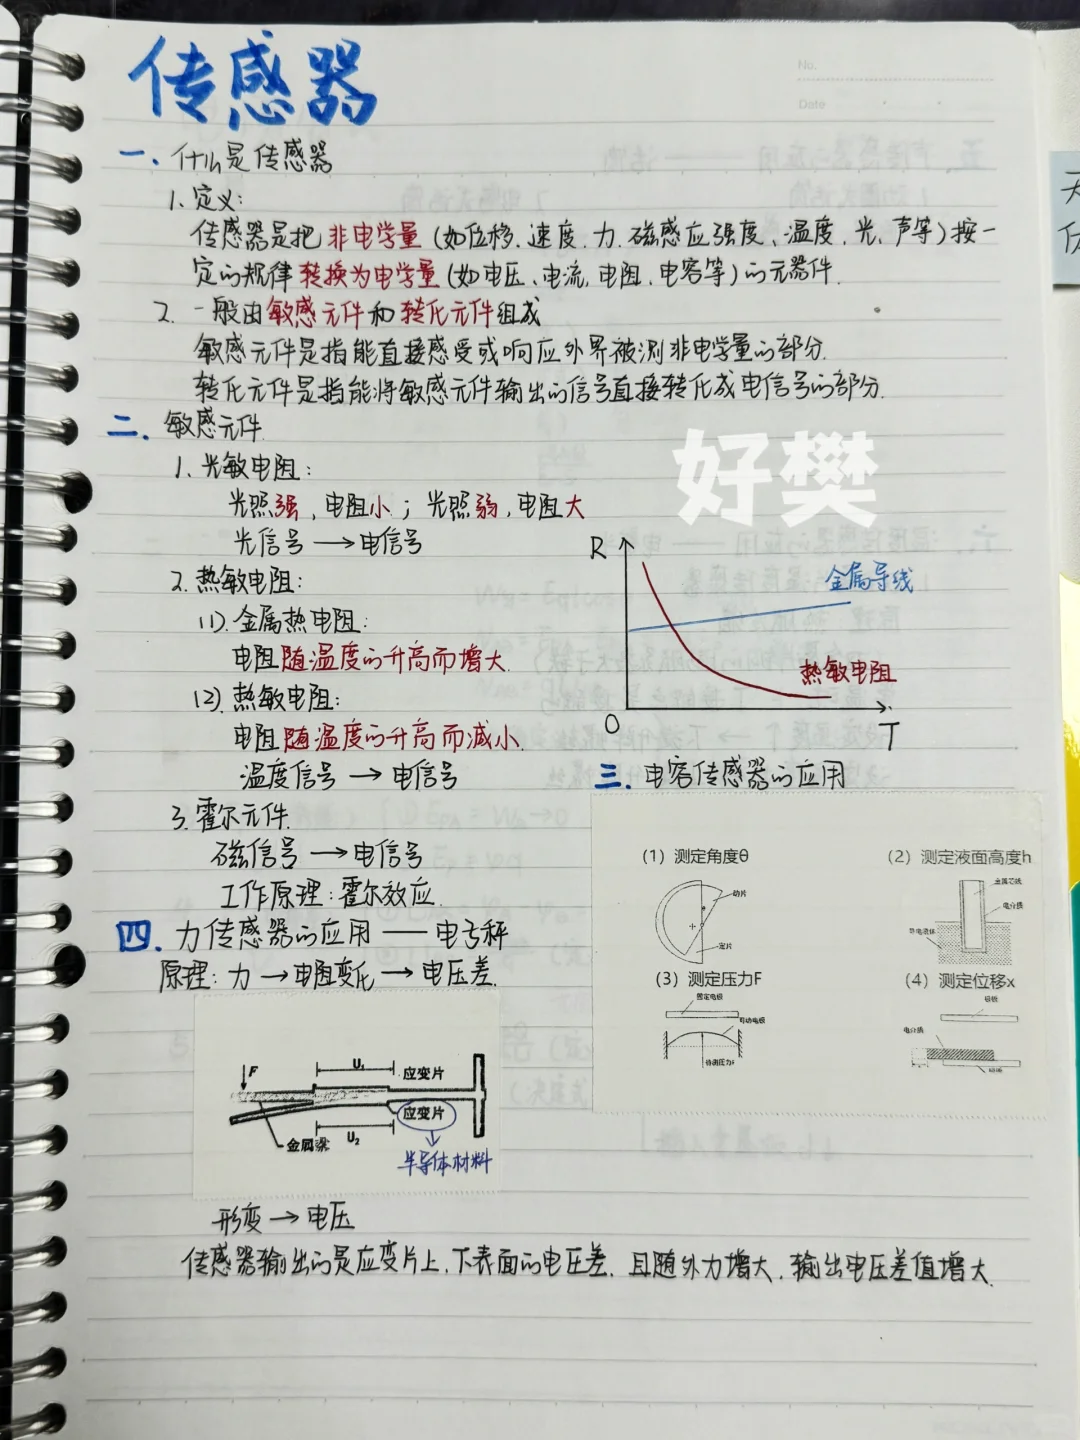 传感器
No.
Date
一、什么是传感器
1、定义:
传感器是把非电学量(如位移、速度、力、磁感应强度、温度、光、声等)按一
定的规律转换为电学量(如电压、电流、电阻、电容等)的元器件.
2. 一般由敏感元件和转化元件组成
敏感元件是指能直接感受或响应外界被测非电学量的部分.
转化元件是指能将敏感元件输出的信号直接转化成电信号的部分.
二、敏感元件.
好樊
1. 光敏电阻:
光照强,电阻小;光照弱,电阻大
光信号→电信号
2. 热敏电阻:
(1).金属热电阻:
电阻随温度的升高而增大.
(2).热敏电阻:
电阻随温度的升高而减小.
温度信号→电信号
R
金属导线
热敏电阻
O
T
3. 霍尔元件.
磁信号→电信号
工作原理:霍尔效应.
三、电容传感器的应用
(1)测定角度θ
动片
定片
(2)测定液面高度h
金属芯线
电介质
导电液体
(3)测定压力F
固定电极
可动电极
待测压力F
(4)测定位移x
极板
电介质
极板
四、力传感器的应用——电子秤
原理:力→电阻变化→电压差.
F
U₁
应变片
应变片
U₂
金属梁
半导体材料
形变→电压
传感器输出的是应变片上、下表面的电压差.且随外力增大,输出电压差值增大.